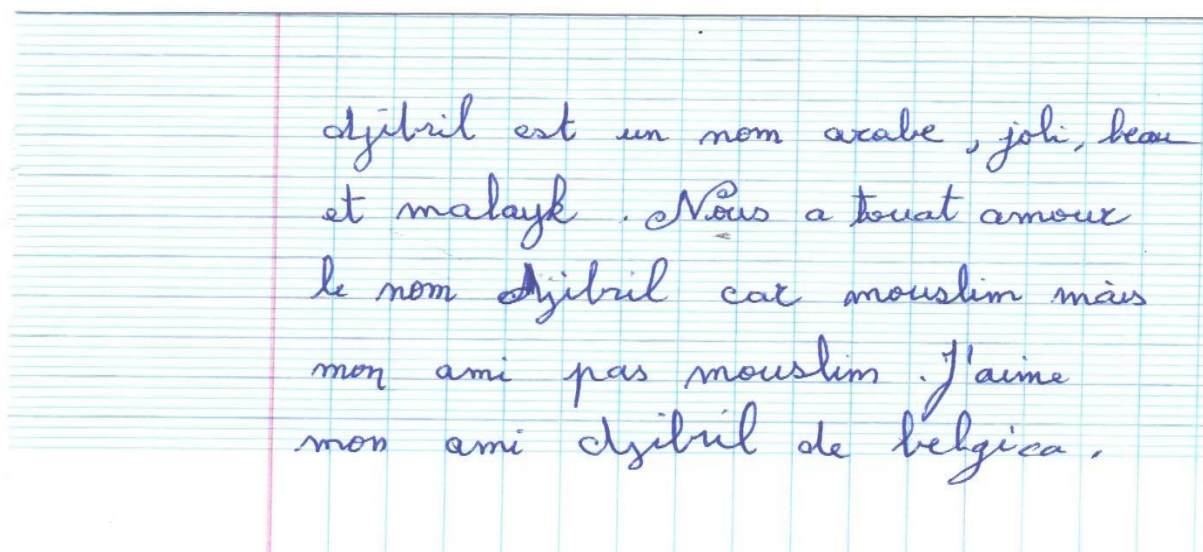 djibril est un nom arabe, joli, beau
et malayk. Nous a touat amour
le nom djibril car mouslim mais
mon ami pas mouslim. J'aime
mon ami djibril de belgica.